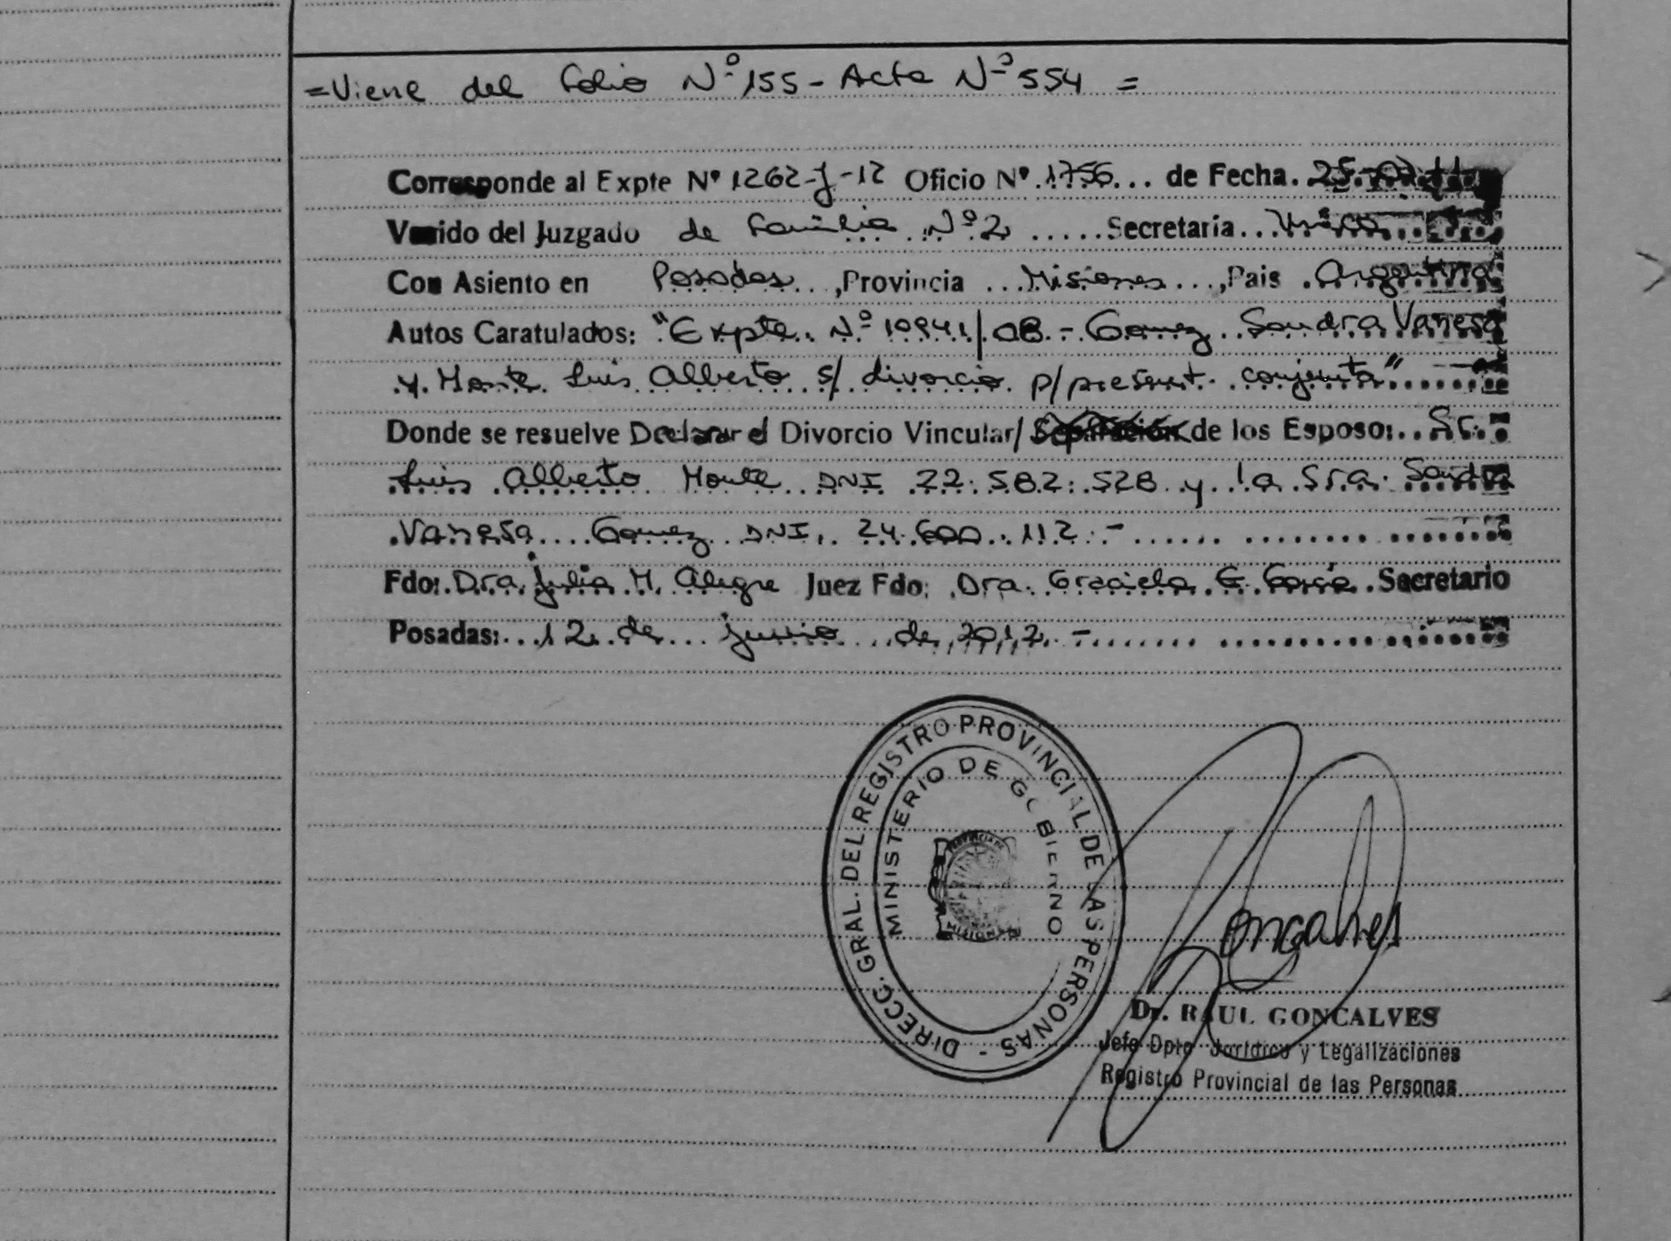 =Viene del Folio Nº 155 - Acta Nº 554 =
Corresponde al Expte Nº 1262-J-12 Oficio Nº 1756... de Fecha. 25.
Venido del Juzgado de Familia Nº 2 ..... Secretaría...
Con Asiento en Posadas..., Provincia ...Misiones..., Pais .Argentina
Autos Caratulados: "Expte. Nº 10941/08.- Gomez Sandra Vanesa
y Monte Luis Alberto s/ divorcio p/present. conjunta"
Donde se resuelve Declarar el Divorcio Vincular/Separación de los Esposo:.. Sr.
Luis Alberto Monte DNI 22.582.528 y la Sra. Sandra
Vanesa.... Gomez DNI. 24.600.112.-
Fdo:. Dra. Julia M. Alegre Juez Fdo: Dra. Graciela G. García. Secretario
Posadas:... 12 de junio de 2012.-
DIRECC. GRAL. DEL REGISTRO PROVINCIAL DE LAS PERSONAS -
MINISTERIO DE GOBIERNO
MISIONES
Goncalves
Dr. RAUL GONCALVES
Jefe Dpto Jurídico y Legalizaciones
Registro Provincial de las Personas